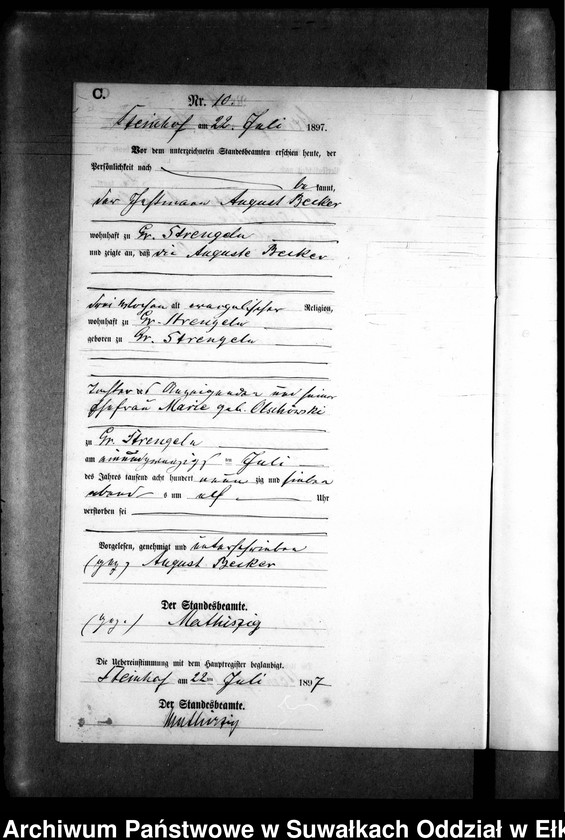 C.
Nr. 10.
Steinhof am 22. Juli 1897.
Vor dem unterzeichneten Standesbeamten erschien heute, der
Persönlichkeit nach
be kannt,
der August Becker
wohnhaft zu Gr. Strengeln
und zeigte an, daß die Auguste Becker
drei Wochen alt evangelischer Religion,
wohnhaft zu Gr. Strengeln
geboren zu Gr. Strengeln
Tochter des Anzeigenden und seiner
Ehefrau Marie geb. Olschewski
zu Gr. Strengeln
am einundzwanzigsten Juli
des Jahres tausend acht hundert neun zig und sieben
abends um elf Uhr
verstorben sei
Vorgelesen, genehmigt und unterschrieben
(gez) August Becker
Der Standesbeamte.
(gez.) Mathiszig
Die Uebereinstimmung mit dem Hauptregister beglaubigt.
Steinhof am 22 ten Juli 1897
Der Standesbeamte.
Mathiszig
Archiwum Państwowe w Suwałkach Oddział w Ełk